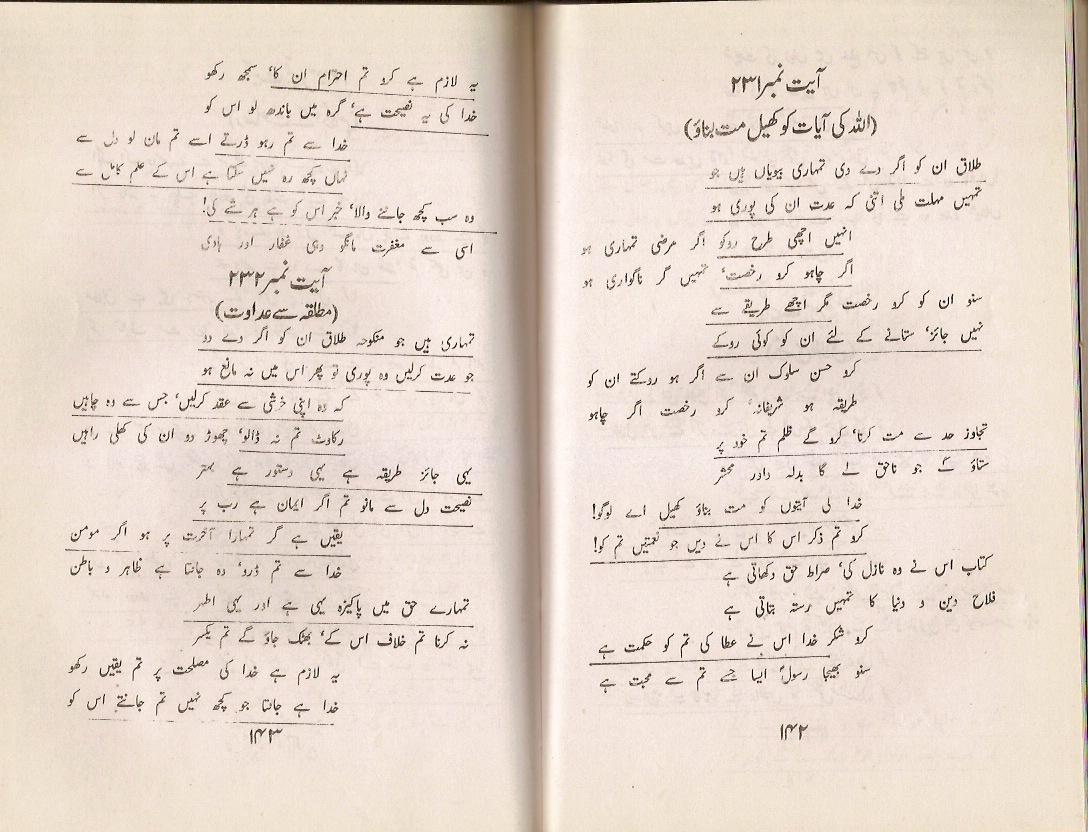 آیت نمبر ۲۳۱
(اللہ کی آیات کو کھیل مت بناؤ)
طلاق ان کو اگر دے دی تمہاری بیویاں ہیں جو
تمہیں مہلت ملی اتنی کہ عدت ان کی پوری ہو
انہیں اچھی طرح روکو اگر مرضی تمہاری ہو
اگر چاہو کرو رخصت، تمہیں گر ناگواری ہو
سنو ان کو کرو رخصت مگر اچھے طریقے سے
نہیں جائز، ستانے کے لئے ان کو کوئی روکے
کرو حسن سلوک ان سے اگر ہو روکتے ان کو
طریقہ ہو شریفانہ، کرو رخصت اگر چاہو
تجاوز حد سے مت کرنا، کرو گے ظلم تم خود پر
ستاؤ گے جو ناحق لے گا بدلہ داور محشر
خدا کی آیتوں کو مت بناؤ کھیل اے لوگو!
کرو تم ذکر اس کا اس نے دیں جو نعمتیں تم کو!
کتاب اس نے وہ نازل کی، صراط حق دکھاتی ہے
فلاح دین و دنیا کا تمہیں رستہ بتاتی ہے
کرو شکر خدا اس نے عطا کی تم کو حکمت ہے
سنو بھیجا رسولؐ ایسا جسے تم سے محبت ہے
۱۴۲
یہ لازم ہے کرو تم احترام ان کا، سمجھ رکھو
خدا کی یہ نصیحت ہے، گرہ میں باندھ لو اس کو
خدا سے تم رہو ڈرتے اسے تم مان لو دل سے
نہاں کچھ رہ نہیں سکتا ہے اس کے علم کامل سے
وہ سب کچھ جاننے والا، خبر اس کو ہے ہر شے کی!
اسی سے مغفرت مانگو وہی غفار اور ہادی
آیت نمبر ۲۳۲
(مطلقہ سے عداوت)
تمہاری ہیں جو منکوحہ طلاق ان کو اگر دے دو
جو عدت کرلیں وہ پوری تو پھر اس میں نہ مانع ہو
کہ وہ اپنی خوشی سے عقد کرلیں، جس سے وہ چاہیں
رکاوٹ تم نہ ڈالو، چھوڑ دو ان کی کھلی راہیں
یہی جائز طریقہ ہے یہی دستور ہے بہتر
نصیحت دل سے مانو تم اگر ایمان ہے رب پر
یقیں ہے گر تمہارا آخرت پر ہو اگر مومن
خدا سے تم ڈرو، وہ جانتا ہے ظاہر و باطن
تمہارے حق میں پاکیزہ یہی ہے اور یہی اطہر
نہ کرنا تم خلاف اس کے، بھٹک جاؤ گے تم یکسر
یہ لازم ہے خدا کی مصلحت پر تم یقیں رکھو
خدا ہے جانتا جو کچھ نہیں تم جانتے اس کو
۱۴۳